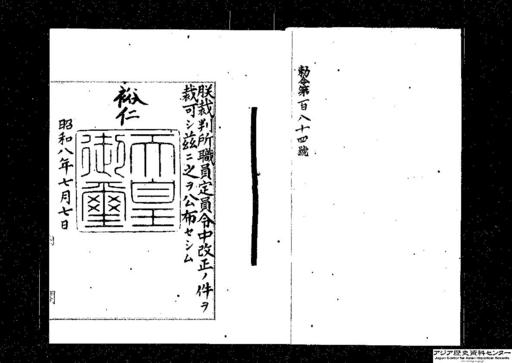 勅令第百八十四號
朕裁判所職員定員令中改正ノ件ヲ
裁可シ茲ニ之ヲ公布セシム
裕仁
天皇
御璽
昭和八年七月七日
アジア歴史資料センター
Japan Center for Asian Historical Records